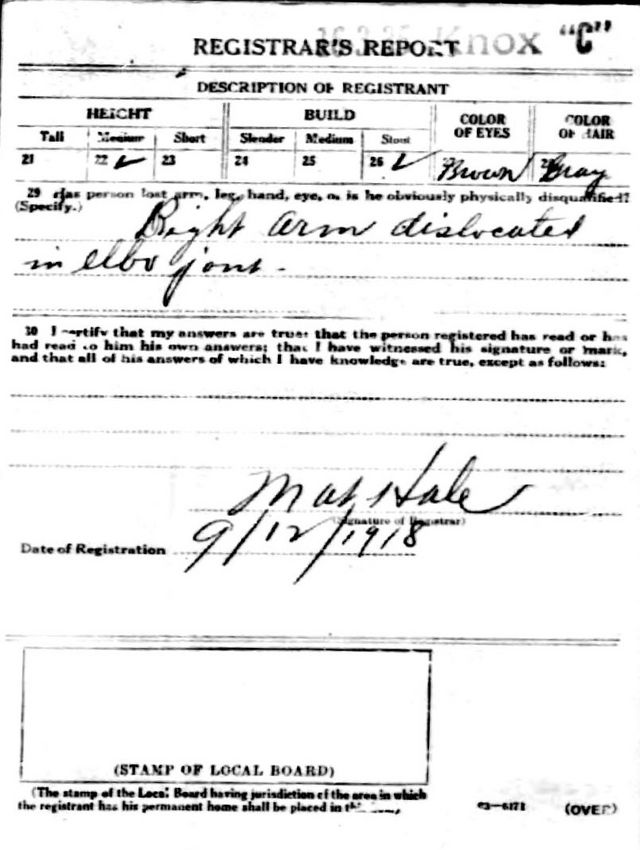 REGISTRAR'S REPORT Knox "C"
DESCRIPTION OF REGISTRANT
HEIGHT BUILD COLOR OF EYES COLOR OF HAIR
Tall Medium Short Slender Medium Stout
21 22 ✓ 23 24 25 26 ✓ Brown Gray
29 Has person lost arm, leg, hand, eye, or is he obviously physically disqualified?
(Specify.)
Right arm dislocated
in elbo jont -
30 I certify that my answers are true; that the person registered has read or has
had read to him his own answers; that I have witnessed his signature or mark,
and that all of his answers of which I have knowledge are true, except as follows:
Hale
(Signature of Registrar)
Date of Registration 9/12/1918
(STAMP OF LOCAL BOARD)
(The stamp of the Local Board having jurisdiction of the area in which
the registrant has his permanent home shall be placed in
03-6171 (OVER)